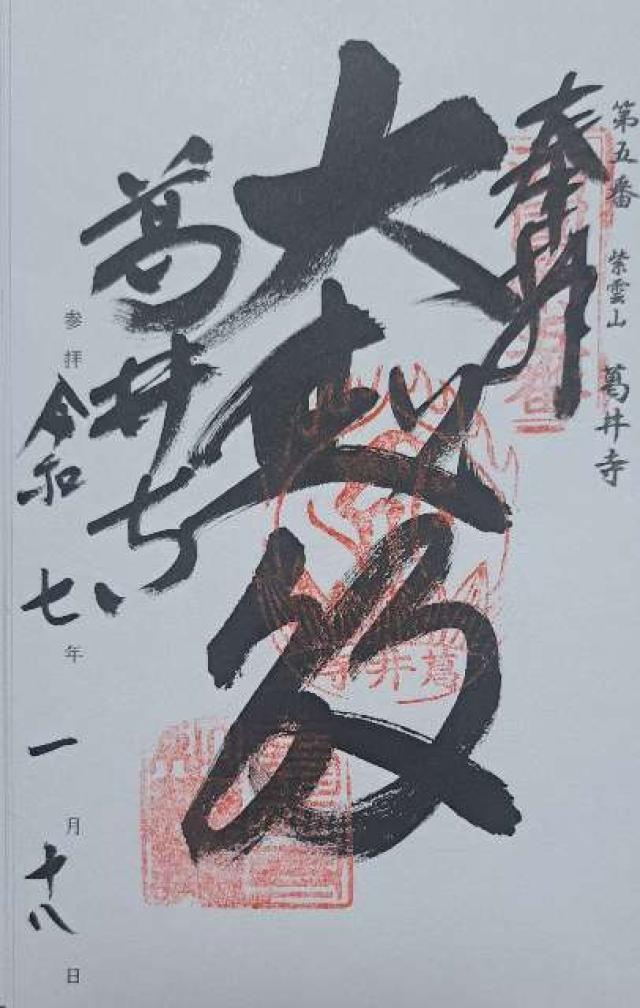 第五番 紫雲山 葛井寺
奉拝
大悲殿
葛井寺
参拝 令和 七年 一月 十八日
葛井寺